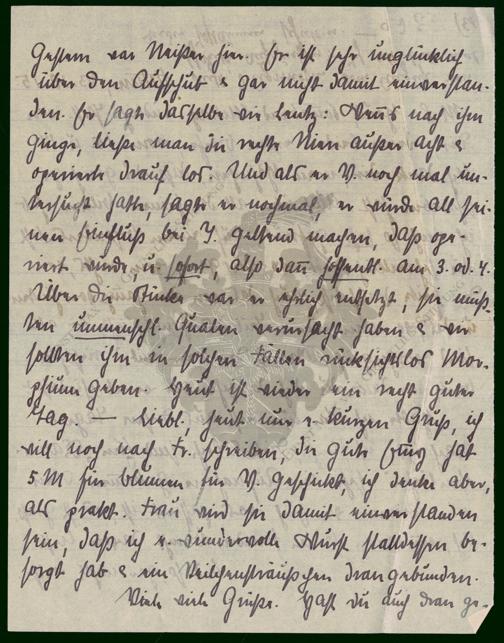 Gestern war Neißer hier. Er ist sehr unglücklich
über den Aufschub & gar nicht damit einverstan-
den. Er sagte dasselbe wie Lentz: Wenn's nach ihm
ginge, ließe man die rechte Niere außer acht &
operierte drauf los. Und als er V. noch mal un-
tersucht hatte, sagte er nochmal, er würde all sei-
nen Einfluß bei geltend machen, daß ope-
riert würde, u. sofort, also dann hoffentl. am 3. od. 4.
Über die war er ehrlich entsetzt, sie müß-
ten unmenschl. Qualen verursacht haben & wir
sollten ihm in solchen Fällen rücksichtslos Mor-
phium geben. Heut ist wieder ein recht guter
Tag. — Liebl, heut nur e. kurzen Gruß, ich
will noch nach Fr. schreiben, die gute hat
5 M für Blumen für V. geschickt, ich denke aber,
als prakt. Frau wird sie damit einverstanden
sein, daß ich e. wundervolle Wurst stattdessen be-
sorgt hab & ein Veilchensträußchen dran gebunden.
Viele viele Grüße. Hast du auch dran ge-